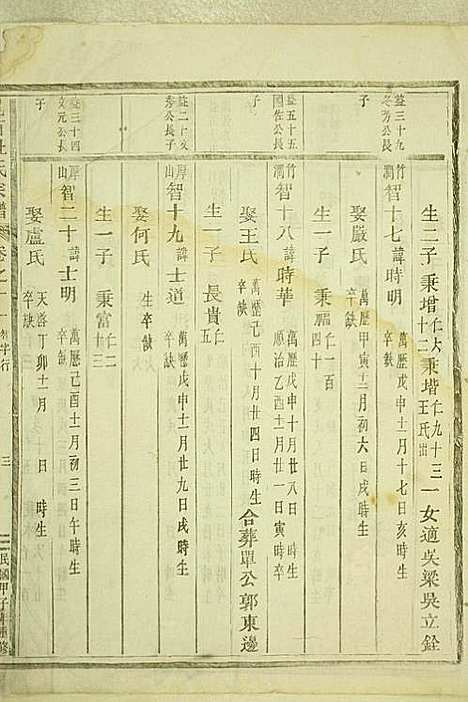 生二子秉增仁大十二秉堦仁九十三王氏出一女適吳梁吳立銓
益三十九冬芳公長子
竹澗智十七諱時明萬歷戊申十一月十七日亥時生卒缺
娶嚴氏萬歷甲寅十二月初六日戌時生卒缺
生一子秉
仁一百四十
益五十五國佐公長子
竹澗智十八諱時華萬歷戊申十月廿八日時生順治乙酉十一月廿一日寅時卒
娶王氏萬歷己酉十月廿四日時生卒缺合葬單公郭東邊
生一子長貴仁五
秀公長子
厚山智十九諱士道萬歷戊申十一月廿九日戌時生卒缺
娶何氏生卒缺
生一子秉富仁二十三
益三十四文元公長子
厚山智二十諱士明萬歷己酉十一月初三日午時生卒缺
娶盧氏天啓丁卯十一月日時生卒缺
氏宗譜
卷之十一
行
三
民國甲子